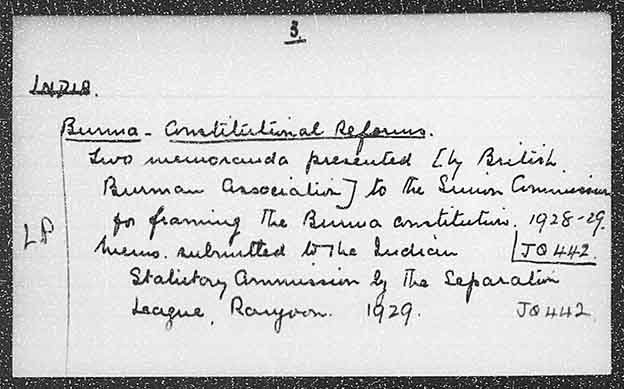 3.
INDIA.
Burma - Constitutional Reforms.
Two memoranda presented [by British
Burman Association] to the Simon Commission
for framing the Burma constitution. 1928-29.
LP
JQ442.
Memo. submitted to the Indian
Statutory Commission by the Separation
League, Rangoon. 1929. JQ442.